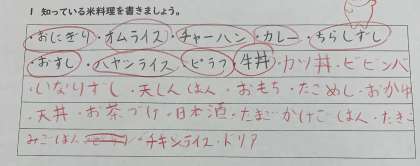 1 知っている米料理を書きましょう。
・おにぎり・オムライス・チャーハン・カレー・ちらしずし
・おすし・ハヤシライス・ピラフ・牛丼・カツ丼・ビビンバ
・いなりずし・天しんはん・おもち・たこめし・おかゆ
・天丼・お茶づけ・日本酒・たまごかけごはん・たきこ
みごはん・チキンライス・ドリア